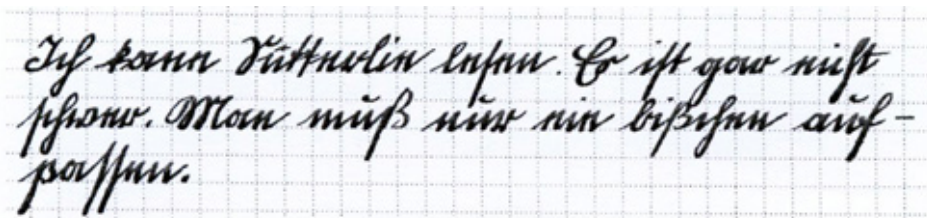 Ich kann Sütterlin lesen. Er ist gar nicht
schwer. Man muß nur ein bißchen auf-
passen.